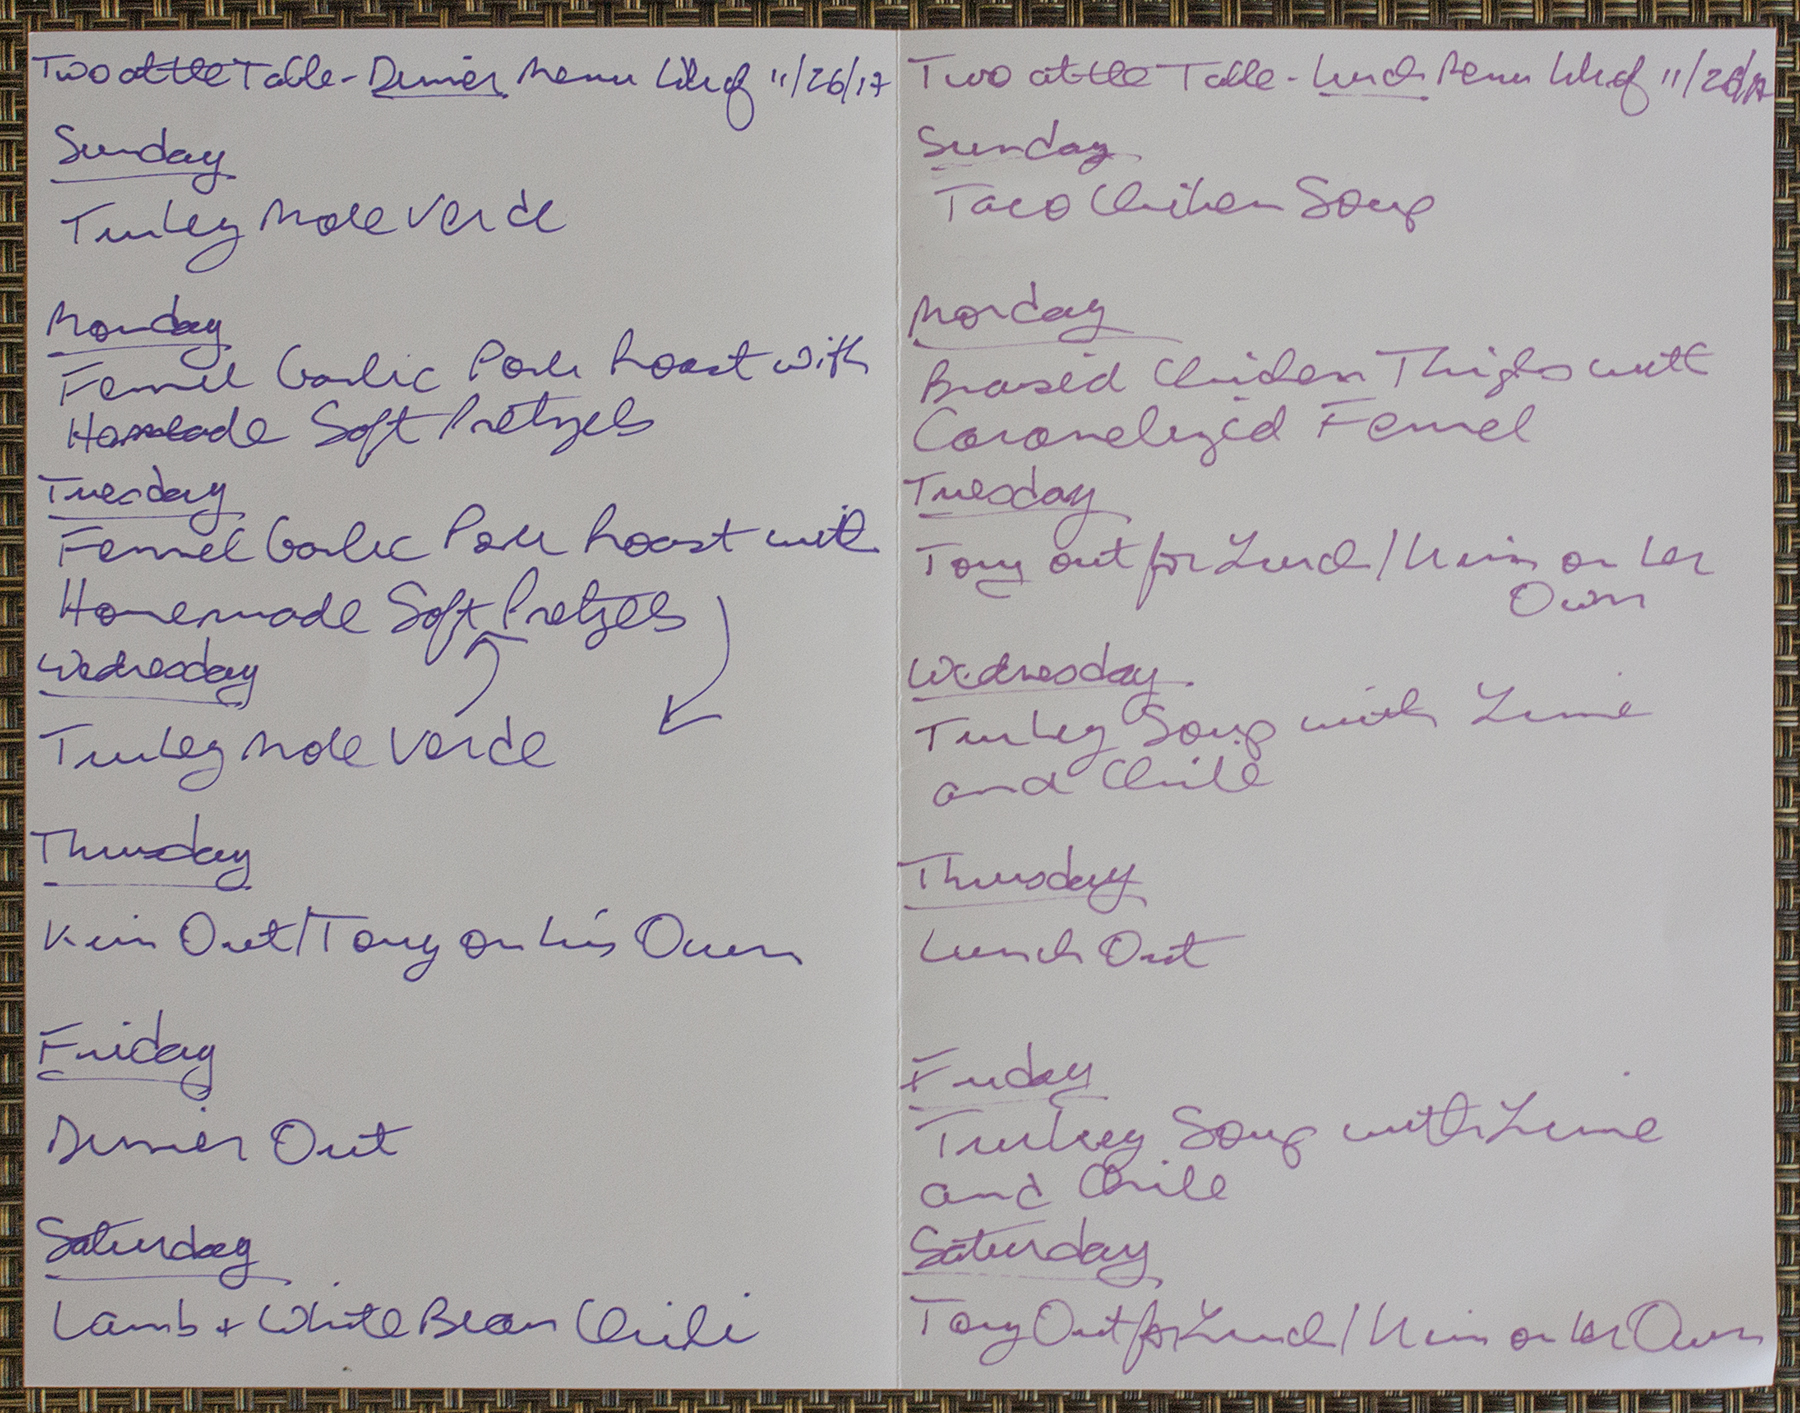 Two at the Table - Dinner Menu Wk of 11/26/17
Sunday
Turkey Mole Verde
Monday
Fennel Garlic Pork Roast with
Homemade Soft Pretzels
Tuesday
Fennel Garlic Pork Roast with
Homemade Soft Pretzels
Wednesday
Turkey Mole Verde
Thursday
Kim Out/Tony on his Own
Friday
Dinner Out
Saturday
Lamb + White Bean Chili
Two at the Table - Lunch Menu Wk of 11/26/17
Sunday
Taco Chicken Soup
Monday
Braised Chicken Thighs with
Caramelized Fennel
Tuesday
Tony out for Lunch/Kim on her
Own
Wednesday
Turkey Soup with Lime
and Chile
Thursday
Lunch Out
Friday
Turkey Soup with Lime
and Chile
Saturday
Tony Out for Lunch/Kim on her Own